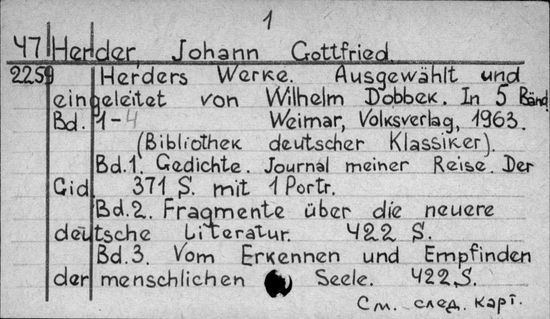 1
47 Herder, Johann Gottfried.
2259 Herders Werke. Ausgewählt und
eingeleitet von Wilhelm Dobbek. In 5 Bänd.
Bd. 1-4 Weimar, Volksverlag, 1963.
(Bibliothek deutscher Klassiker).
Bd.1. Gedichte. Journal meiner Reise. Der
Cid. 371 S. mit 1 Portr.
Bd.2. Fragmente über die neuere
deutsche Literatur. 422 S.
Bd.3. Vom Erkennen und Empfinden
der menschlichen Seele. 422 S.
См. след. карт.